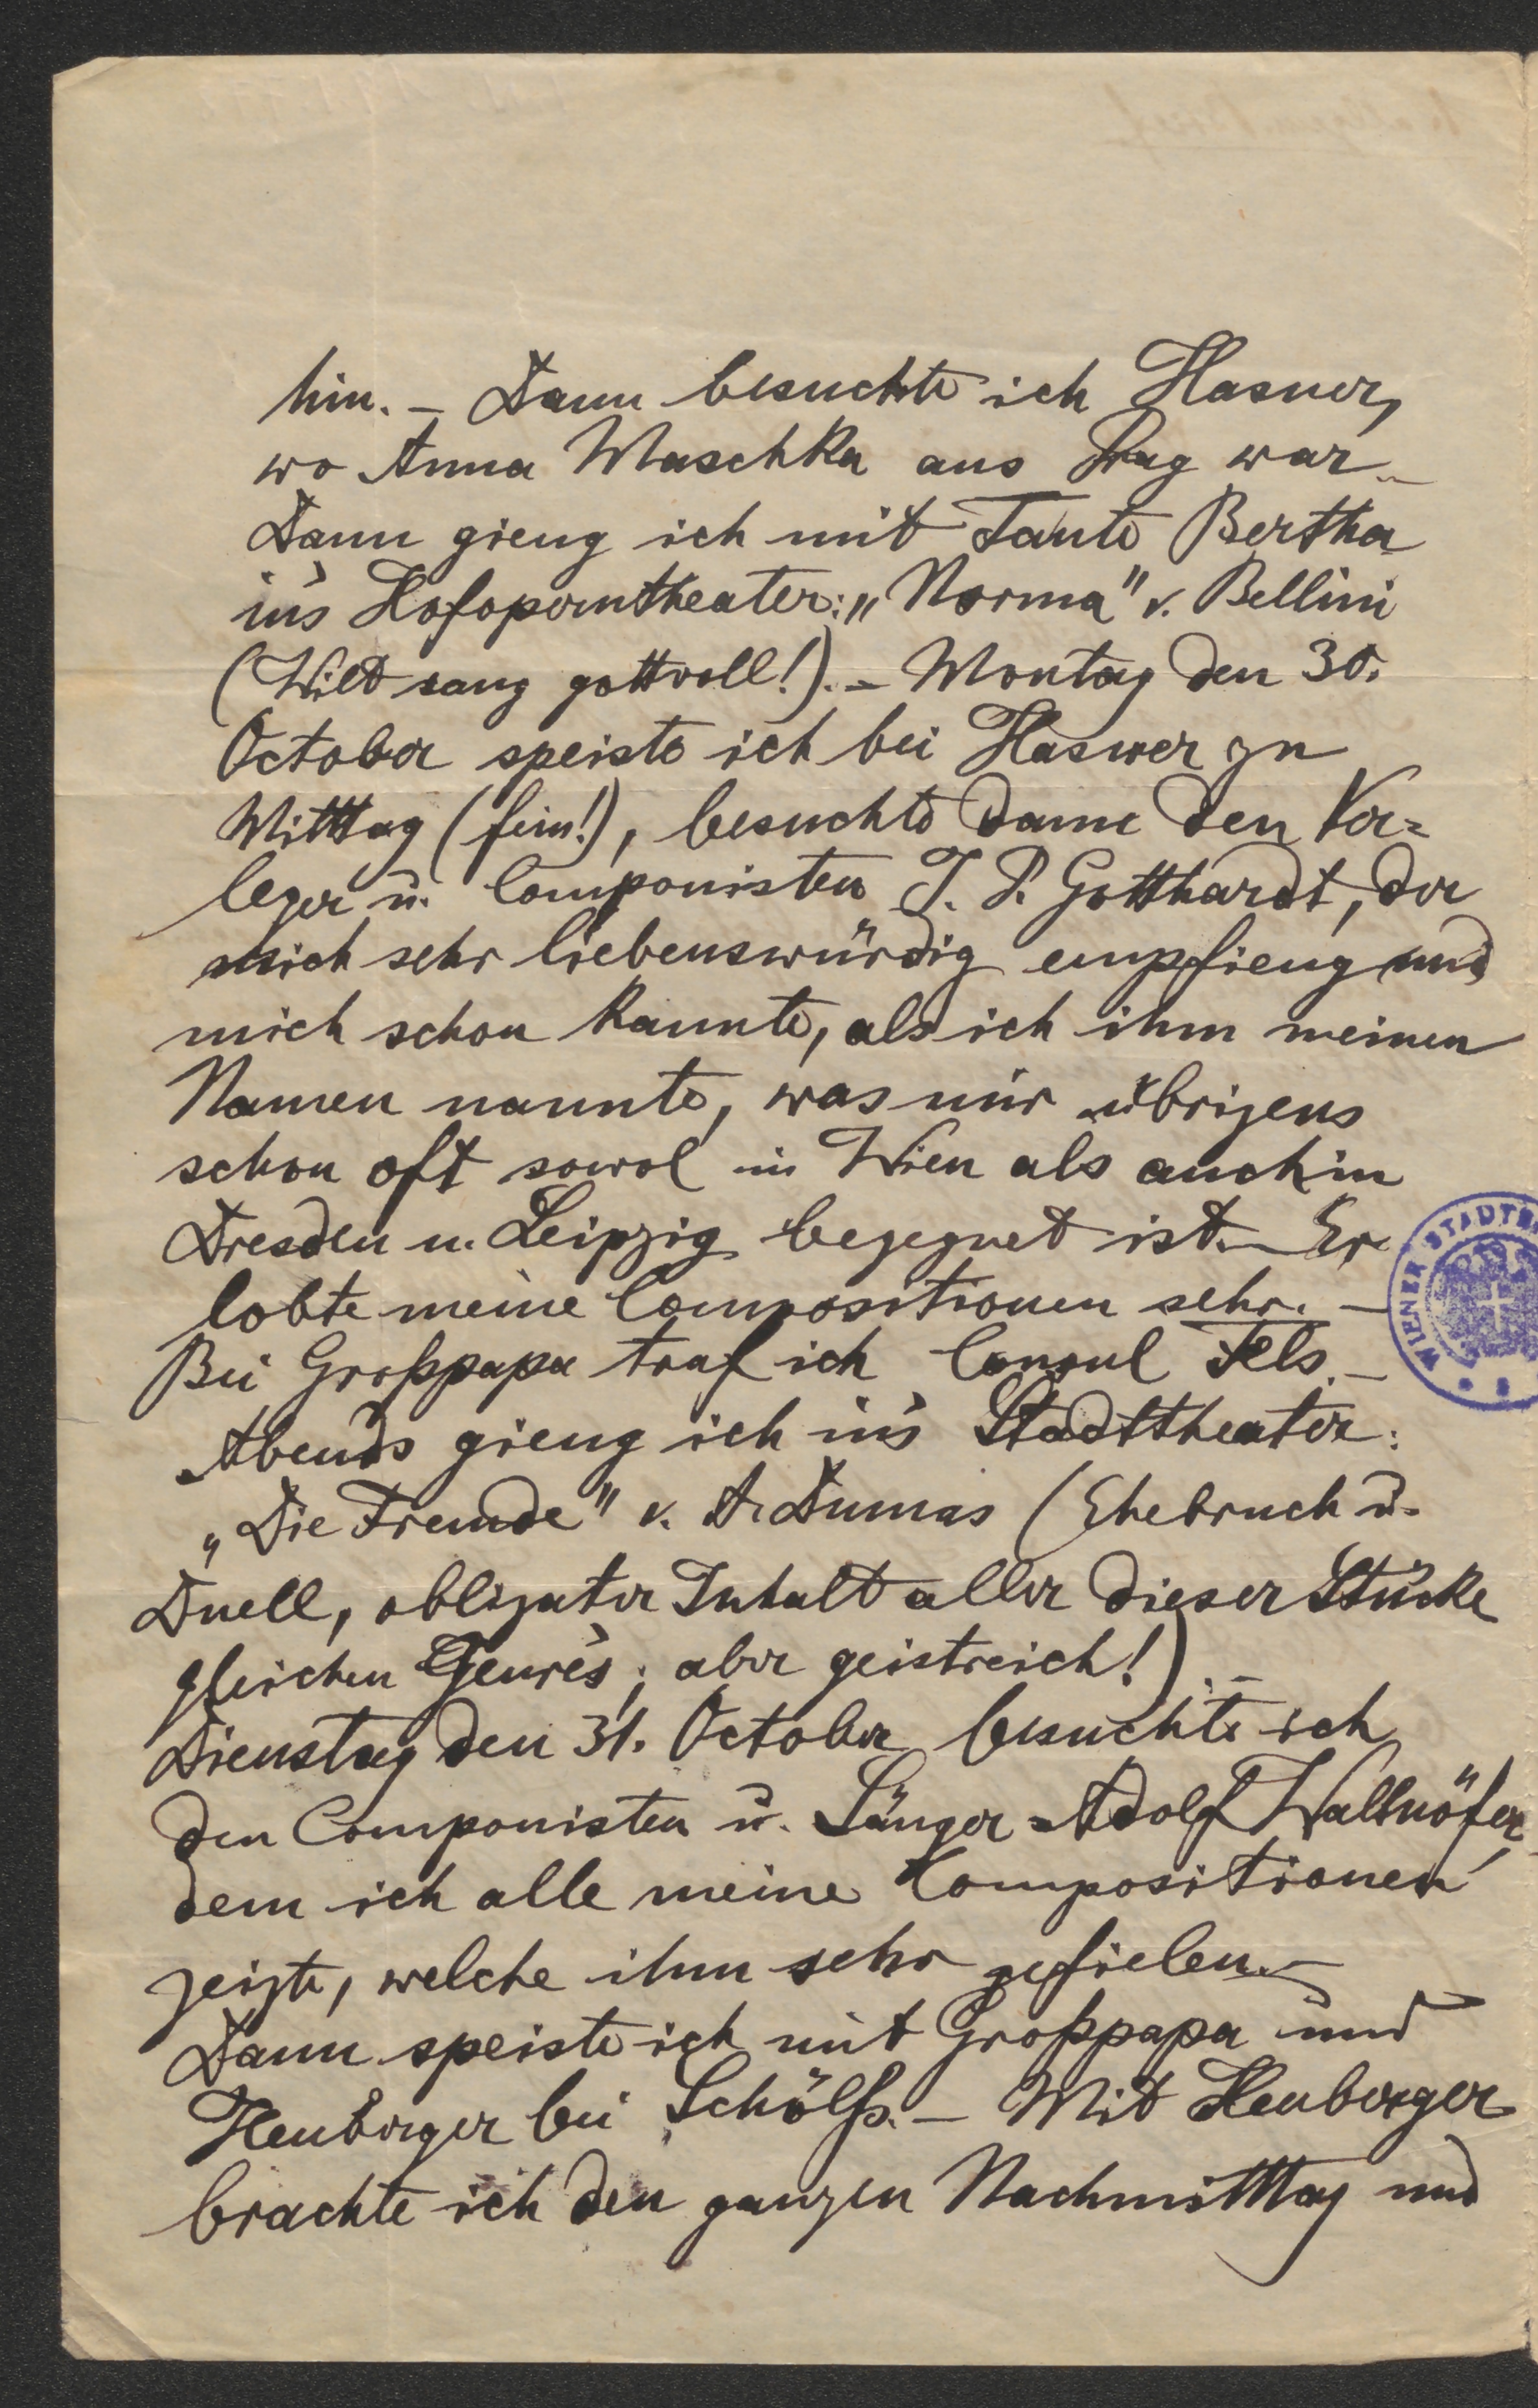 hin. – Dann besuchte ich Hasner,
wo Anna Maschka aus Prag war –
Dann gieng ich mit Tante Bertha
in's Hofoperntheater: „Norma" v. Bellini
(Wilt sang gottvoll!). – Montag den 30.
October speiste ich bei Hasner zu
Mitttag (fein!), besuchte dann den Ver=
leger u. Componisten J. P. Gotthardt, der
mich sehr liebenswürdig empfieng und
mich schon kannte, als ich ihm meinen
Namen nannte, was mir übrigens
schon oft sowol in Wien als auch in
Dresden u. Leipzig begegnet ist. – Er
lobte meine Compositionen sehr. –
Bei Großpapa traf ich Consul Fels. –
Abends gieng ich in's Stadttheater:
„Die Fremde" v. A. Dumas (Ehebruch u.
Duell, obligater Inhalt aller dieser Stücke
gleichen Genre's; aber geistreich!). –
Dienstag den 31. October besuchte ich
den Componisten u. Sänger Adolf Wallnöfer,
dem ich alle meine Compositionen
zeigte, welche ihm sehr gefielen. –
Dann speiste ich mit Großpapa und
Heuberger bei Schölß. – Mit Heuberger
brachte ich den ganzen Nachmitttag und
WIENER STADT